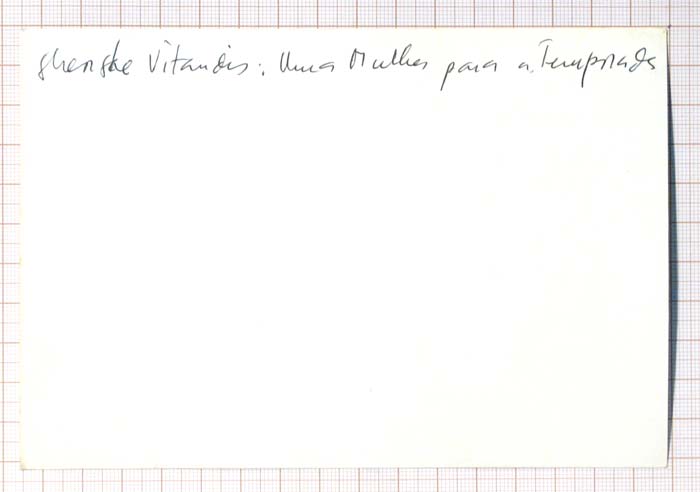 Gheorghe Vitandis: Uma Mulher para a Temporada